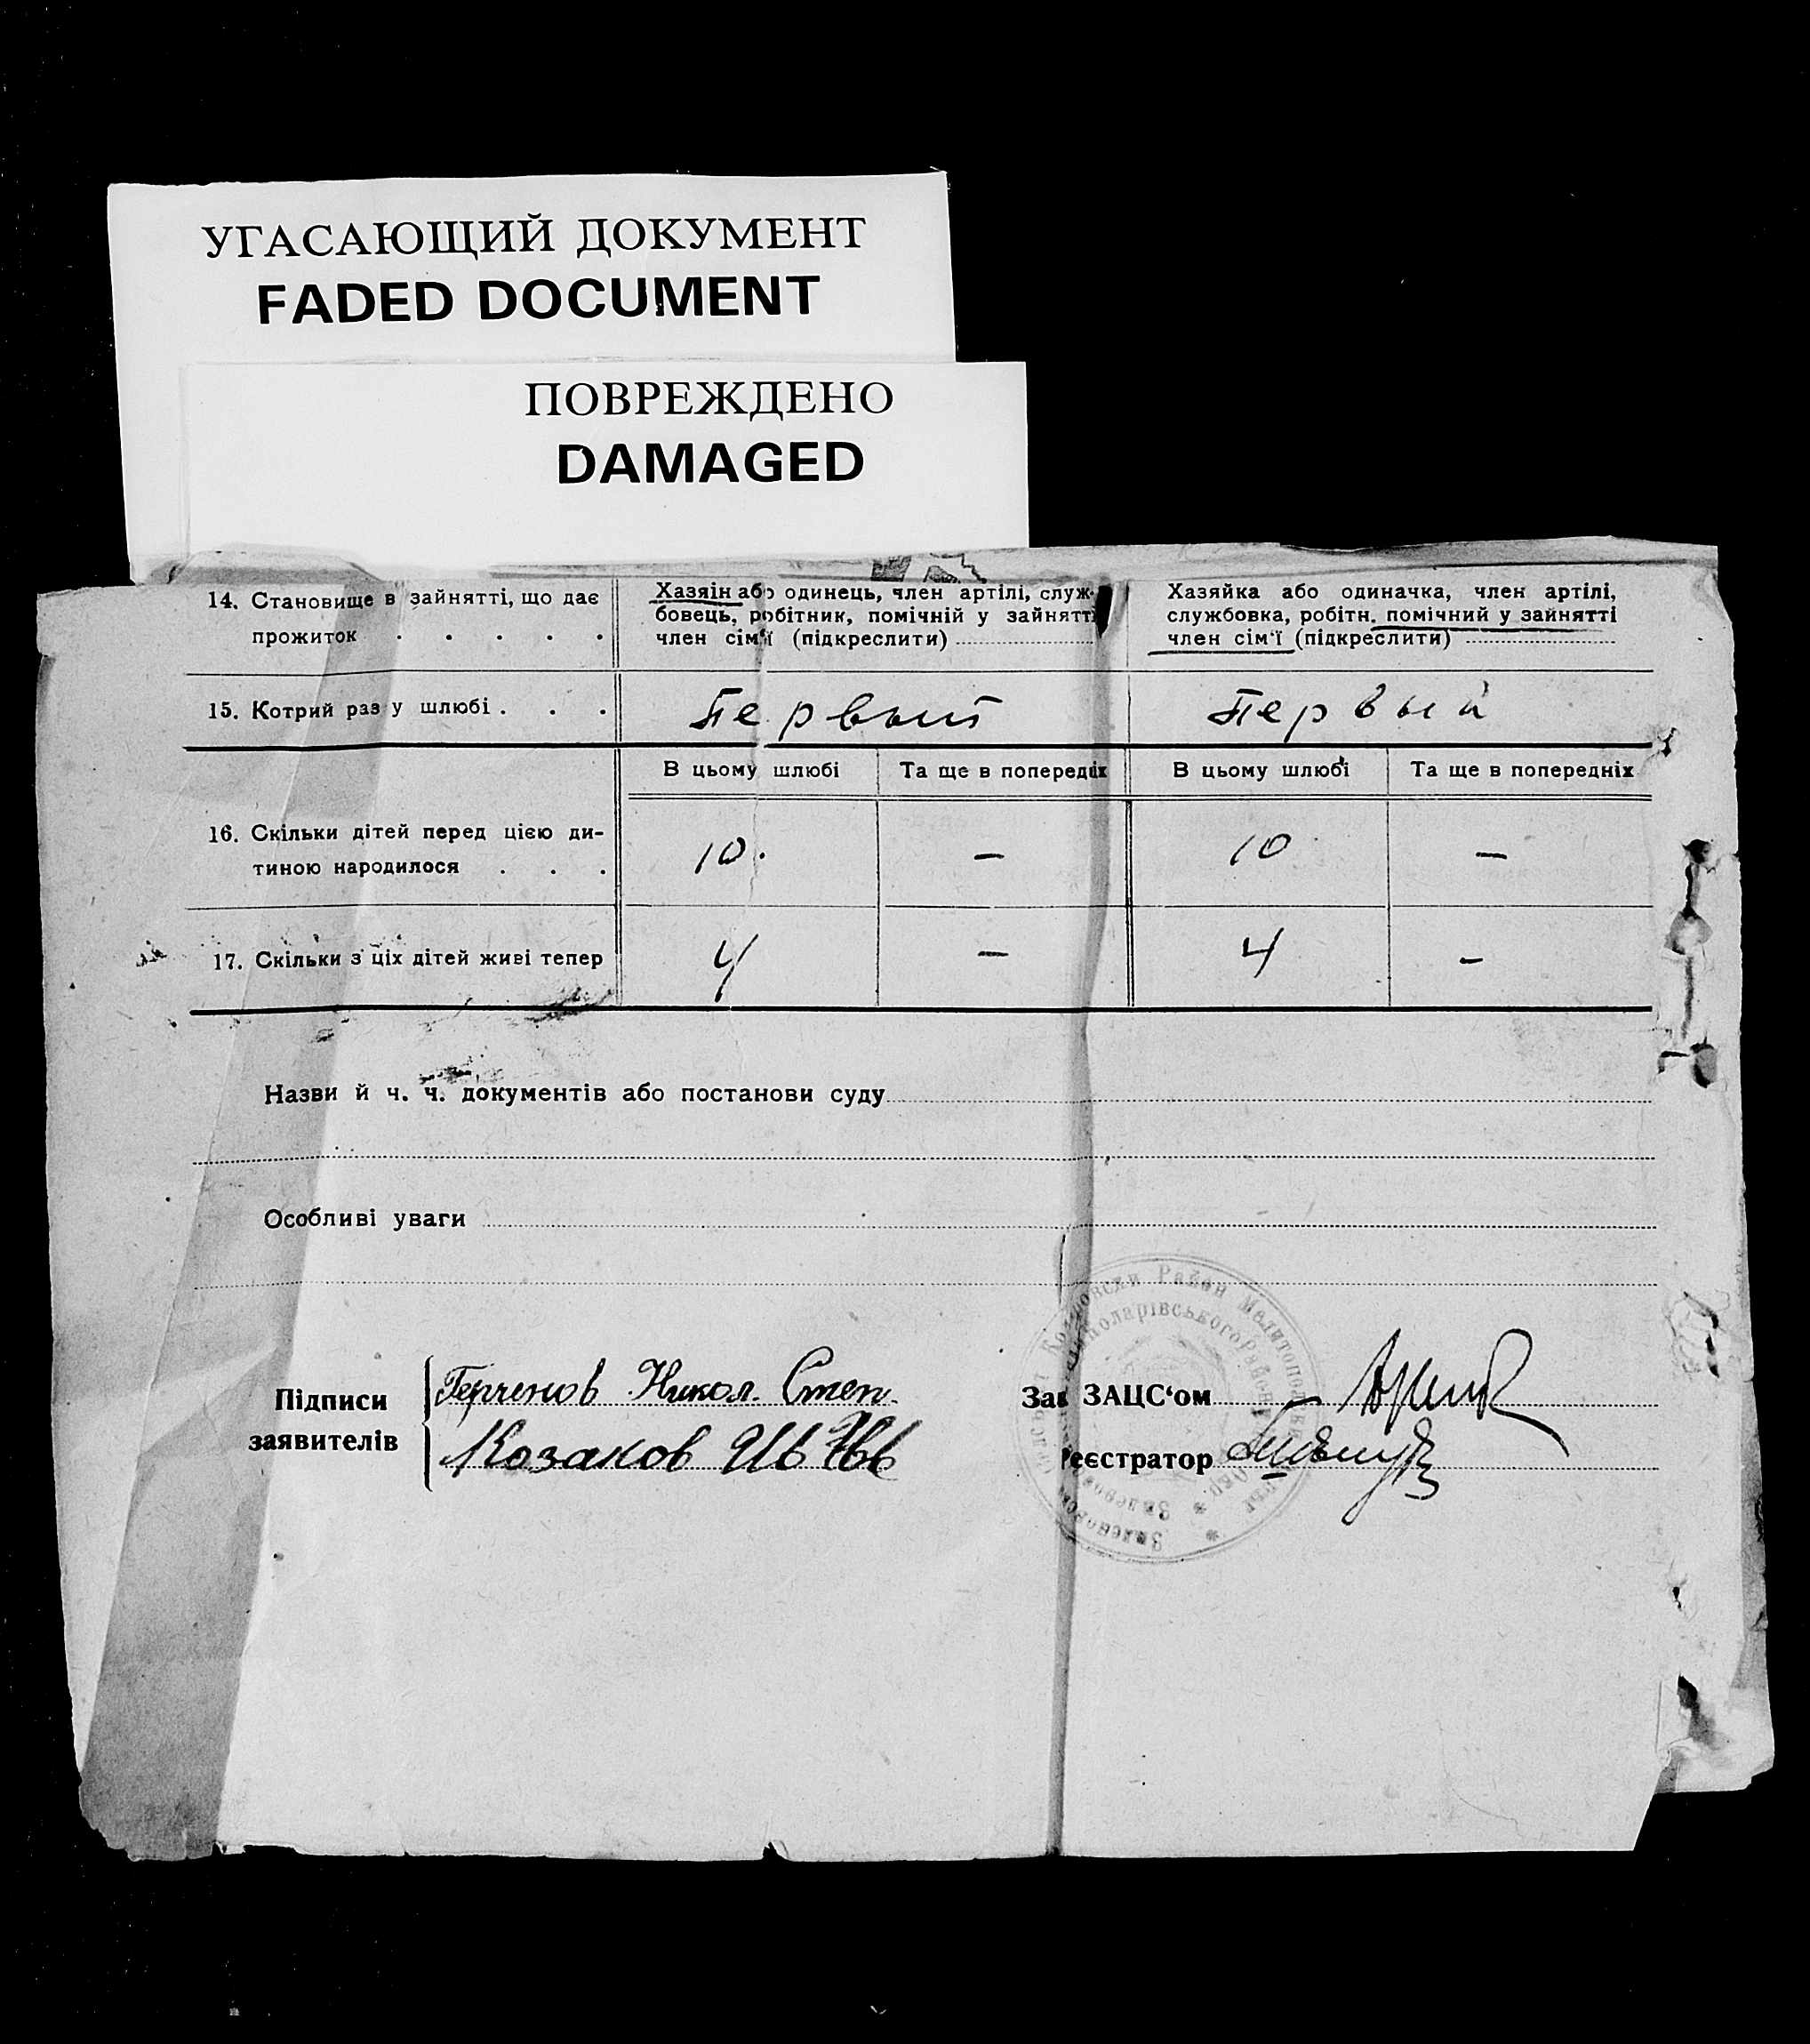 УГАСАЮЩИЙ ДОКУМЕНТ
FADED DOCUMENT
ПОВРЕЖДЕНО
DAMAGED
14. Становище в зайнятті, що дає
прожиток . . . . .
Хазяін або одинець, член артілі, служ-
бовець, робітник, помічній у зайнятті
член сім'ї (підкреслити)
Хазяйка або одиначка, член артілі,
службовка, робітн. помічний у зайнятті
член сім'ї (підкреслити)
15. Котрий раз у шлюбі . . .
Первый
Первый
В цьому шлюбі
Та ще в попередніх
В цьому шлюбі
Та ще в попередніх
16. Скільки дітей перед цією ди-
тиною народилося . . .
10.
—
10
—
17. Скільки з ціх дітей живі тепер
4
—
4
-
Назви й ч. ч. документів або постанови суду
Особливі уваги
Підписи
заявителів
Никол. Степ.
Козаков Ив
Зав ЗАЦС'ом
Реєстратор
Район Мелитопол